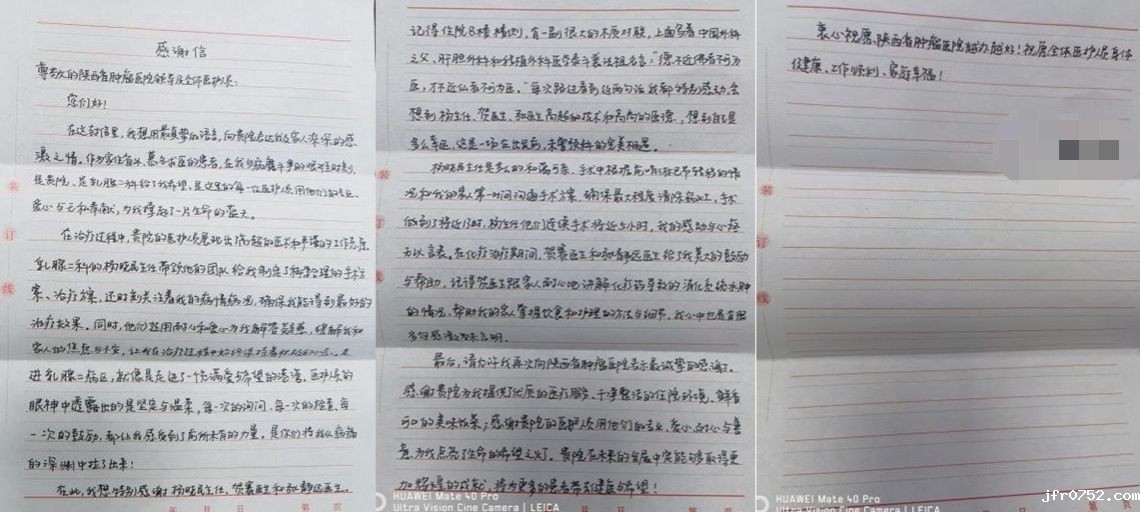 感谢信
尊敬的陕西省肿瘤医院领导及全体医护人员:
您们好!
在这封信里,我想用最真挚的语言,向贵院表达我及家人深深的感
激之情。作为家住省外、慕名求医的患者,在我与病魔斗争的艰难时刻,
是贵院,是乳腺二科给了我希望,是这里的每一位医护人员用他们的专业、
爱心与无私奉献,为我撑起了一片生命的蓝天。
在治疗过程中,贵院的医护人员展现出了高超的医术和严谨的工作态度。
乳腺二科的杨晓民主任带领他的团队给我制定了科学合理的手术方
案、治疗方案,还时刻关注着我的病情病况,确保我能得到最好的
治疗效果。同时,他们还用耐心和爱心为我解答疑惑,缓解我和
家人的焦虑与不安,让我在治疗过程中始终保持着积极的心态。走
进乳腺二病区,就像是走进了一个充满爱与希望的港湾。医护人员的
眼神中透露出的是坚定与温柔,每一次的询问、每一次的检查、每
一次的鼓励,都让我感受到了前所未有的力量。是你们将我从病痛
的深渊中拉了出来!
在此,我想特别感谢杨晓民主任、贺赛医生和张静远医生。
记得住院8楼楼梯间,有一副很大的木质对联,上面写着中国外科
之父、肝胆外科和移植外科医学泰斗裘法祖名言:“德不近佛者不可为
医,才不近仙者不可为医。”每次路过看到这两句话我都特别感动,会
想到杨主任、贺医生、张医生高超的技术和高尚的医德,想到自己是
多么幸运,这是一场全出发前,未曾预料的完美相遇。
杨晓民主任是多么的和蔼可亲,手术中根据前哨淋巴节转移的情
况和我的家人第一时间沟通手术方案,确保最大程度清除病灶,手术
做到了将近13时,杨主任他们连续手术将近5小时,我的感动与心疼
无以言表。在化疗治疗期间,贺赛医生和张静远医生给了我莫大的鼓励
与帮助,记得贺医生跟家人耐心地讲解化疗药导致的消化系统水肿
的情况,帮助我的家人掌握饮食和护理的方法与细节,我心中也是有很
多的感激无以言明。
最后,请允许我再次向陕西省肿瘤医院表示最诚挚的感谢。
感谢贵院为我提供了优质的医疗服务、干净整洁的住院环境、鲜香
可口的美味饭菜;感谢贵院的医护人员用他们的专业、爱心、耐心与善
意,为我点亮了生命的希望之灯。贵院在未来的发展中定能够取得更
加辉煌的成就,将为更多的患者带去健康与希望!
衷心祝愿陕西省肿瘤医院越办越好!祝愿全体医护人员身体
健康、工作顺利、家庭幸福!
装
订
线
年 月 日 第 页
HUAWEI Mate 40 Pro
Ultra Vision Cine Camera | LEICA
年 月 日 第 页
HUAWEI Mate 40 Pro
Ultra Vision Cine Camera | LEICA
第 页
jfr0752.com